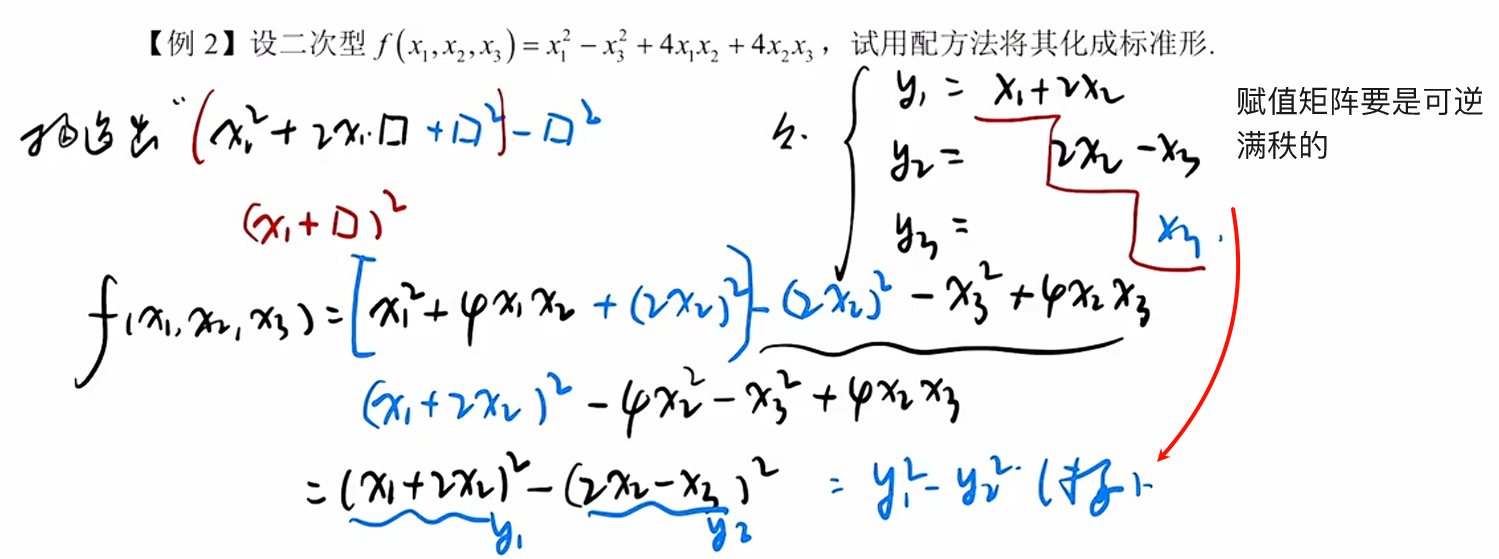 【例 2】设二次型 f(x₁,x₂,x₃)=x₁²−x₃²+4x₁x₂+4x₂x₃，试用配方法将其化成标准形.
“(x₁²+2x₁·□+□²)−□²
(x₁+□)²
{ y₁ = x₁+2x₂
y₂ = 2x₂−x₃
y₃ = x₃.
赋值矩阵要是可逆
满秩的
f(x₁,x₂,x₃)=[x₁²+4x₁x₂+(2x₂)²]−(2x₂)²−x₃²+4x₂x₃
(x₁+2x₂)²−4x₂²−x₃²+4x₂x₃
=(x₁+2x₂)²−(2x₂−x₃)² = y₁²−y₂².
y₁ y₂